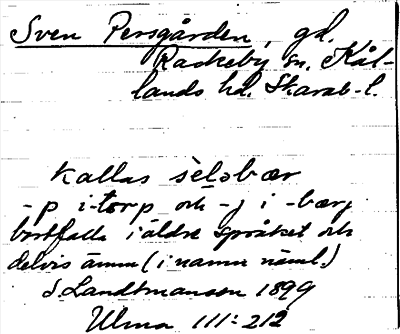 Sven Persgården, gd.
Rackeby sn. Kål-
lands hd. Skarab-l.
Kallas sèlsbær
-p i -torp och -j i -bærj
bortfalla i äldre språket och
delvis ännu (i namn näml.)
S. Landtmanson 1899
Ulma 111:212